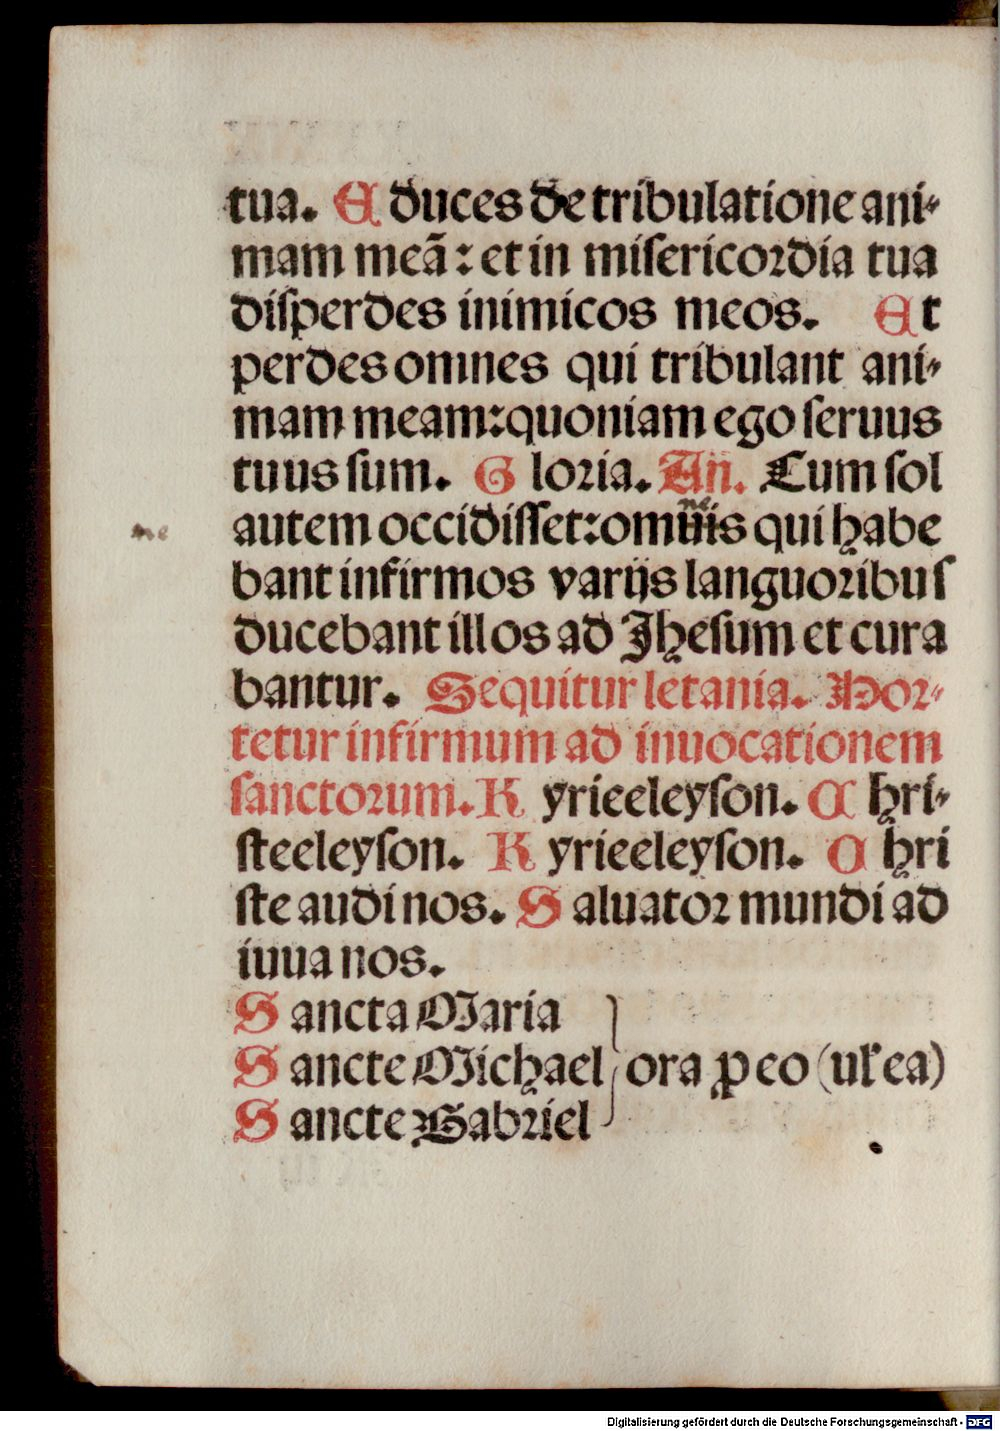 tua. E duces de tribulatione ani-
mam meã: et in misericordia tua
disperdes inimicos meos. Et
perdes omnes qui tribulant ani-
mam meam: quoniam ego seruus
tuus sum. G loria. Añ. Cum sol
autem occidisset: omnis qui habe
ne
me
bant infirmos varijs languoribus
ducebant illos ad Jhesum et cura
bantur. Sequitur letania. Hor-
tetur infirmum ad inuocationem
sanctorum. K yrieeleyson. C hri-
steeleyson. K yrieeleyson. C hri
ste audi nos. S aluator mundi ad
iuua nos.
S ancta Maria
S ancte Michael ora ꝓ eo (ul' ea)
S ancte Gabriel
Digitalisierung gefördert durch die Deutsche Forschungsgemeinschaft - DFG